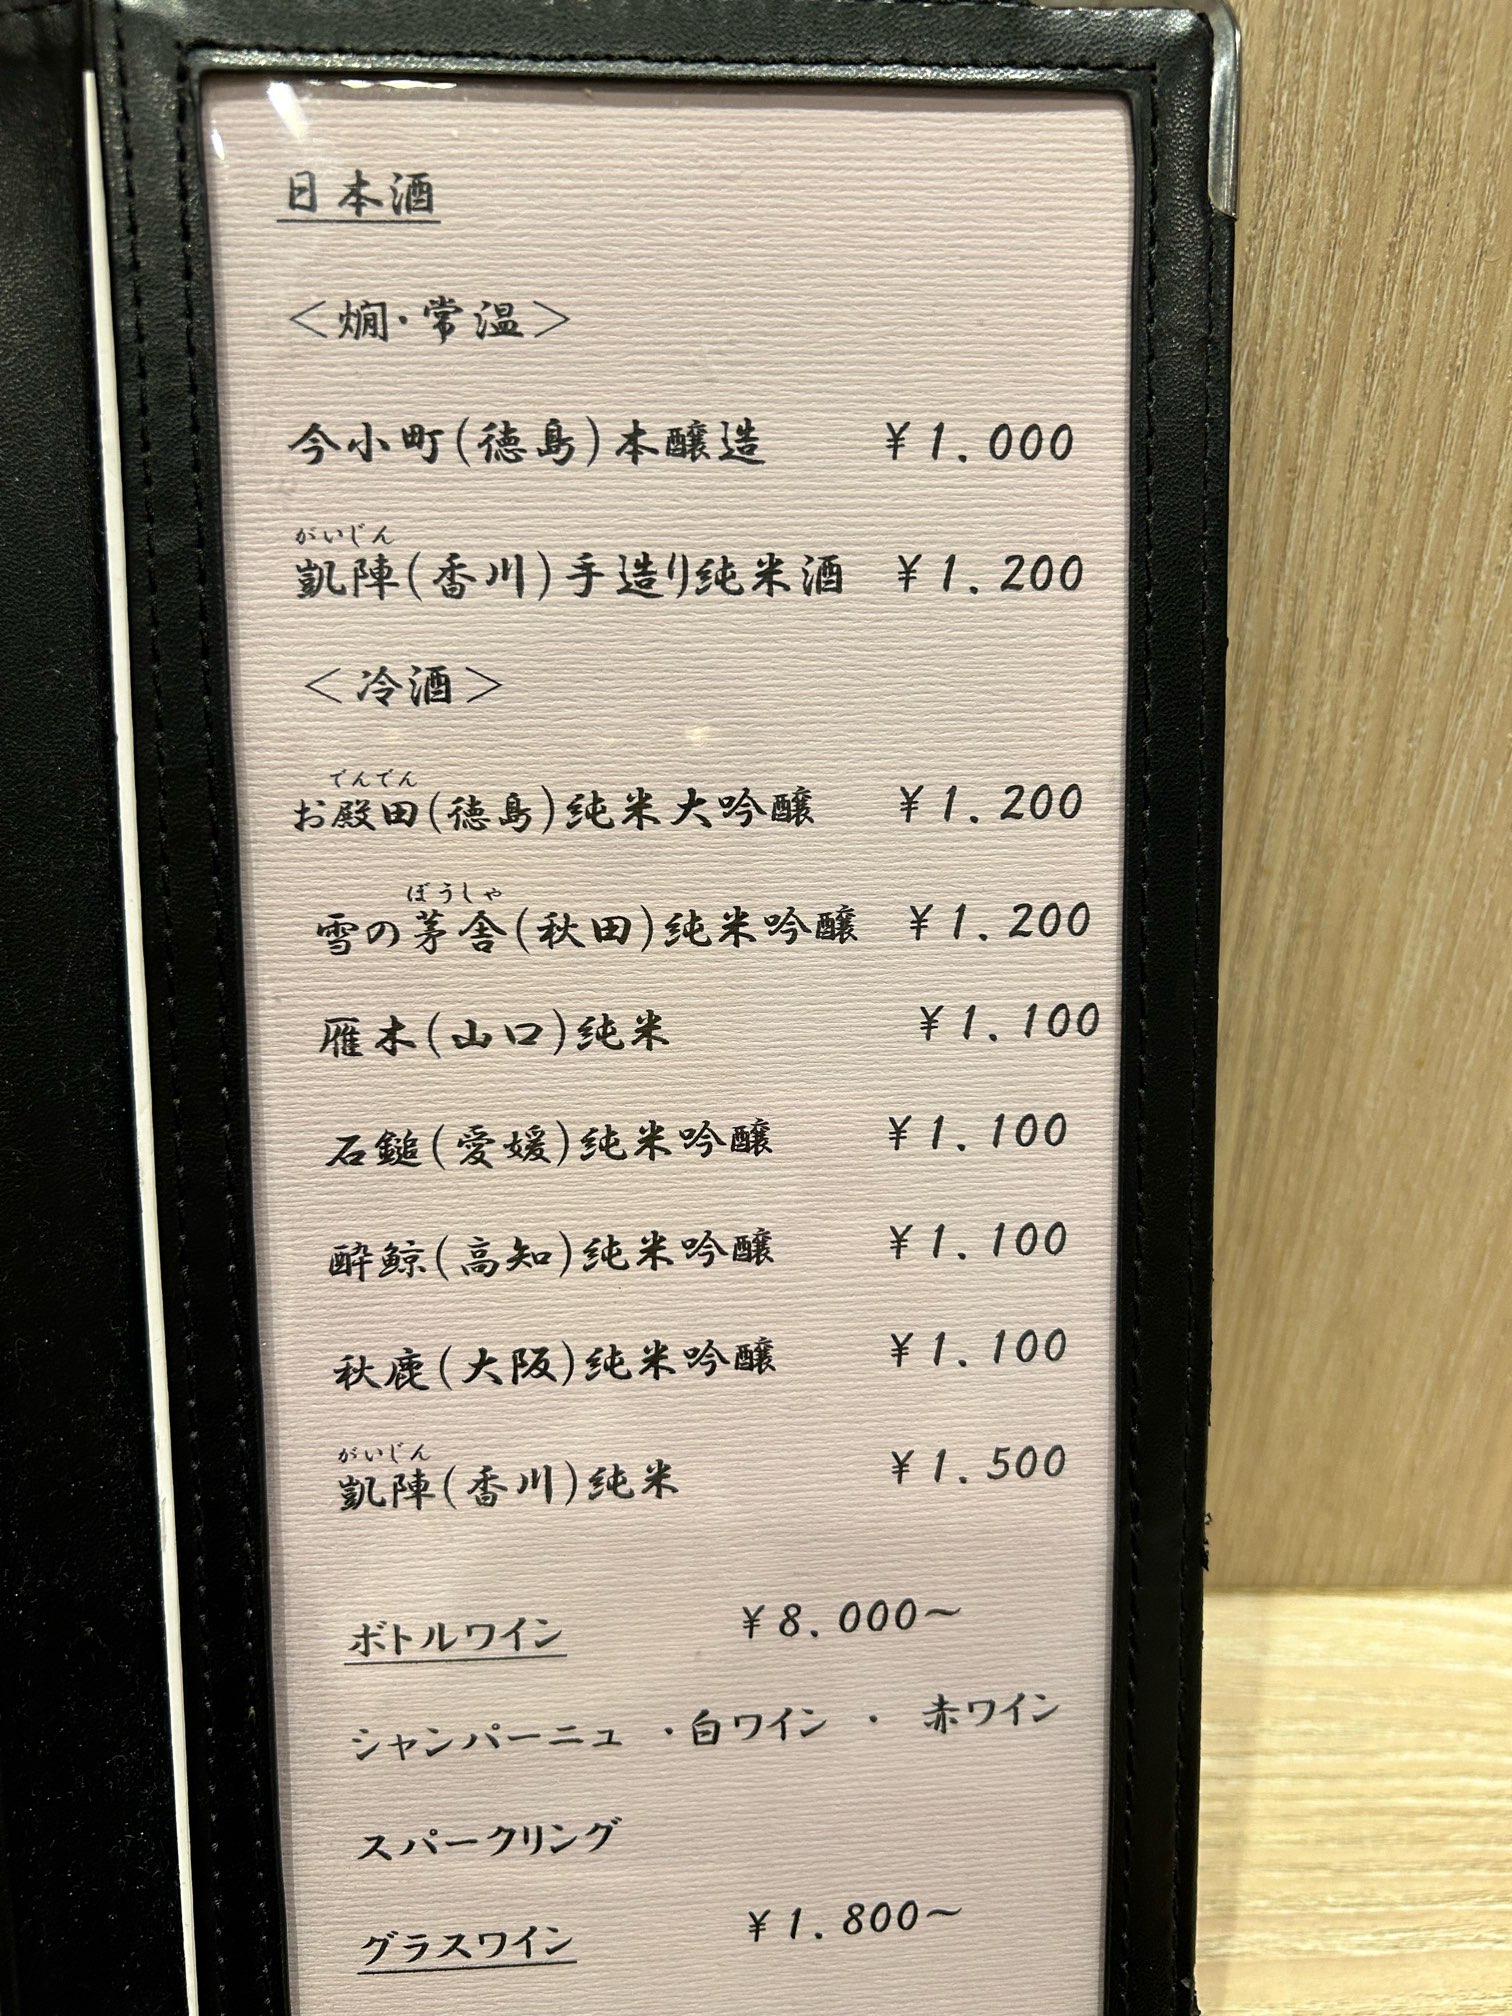 日本酒
＜燗・常温＞
今小町(徳島)本醸造 ¥1.000
がいじん
凱陣(香川)手造り純米酒 ¥1.200
＜冷酒＞
でんでん
お殿田(徳島)純米大吟醸 ¥1.200
ぼうしゃ
雪の茅舎(秋田)純米吟醸 ¥1.200
雁木(山口)純米 ¥1.100
石鎚(愛媛)純米吟醸 ¥1.100
酔鯨(高知)純米吟醸 ¥1.100
秋鹿(大阪)純米吟醸 ¥1.100
がいじん
凱陣(香川)純米 ¥1.500
ボトルワイン ¥8.000～
シャンパーニュ ・白ワイン ・ 赤ワイン
スパークリング
グラスワイン ¥1.800～